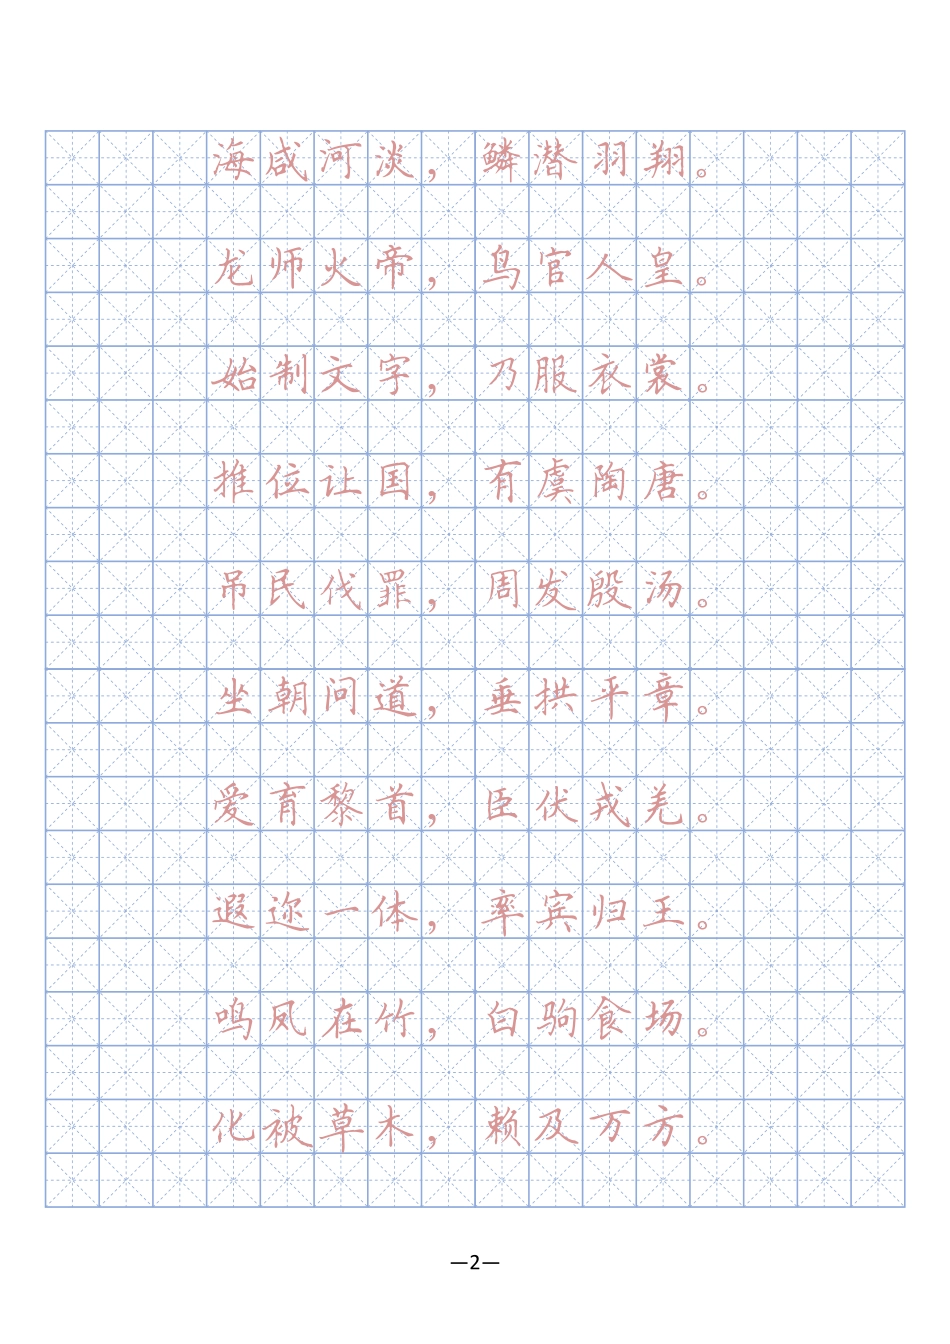 海咸河淡，鳞潜羽翔。
龙师火帝，鸟官人皇。
始制文字，乃服衣裳。
推位让国，有虞陶唐。
吊民伐罪，周发殷汤。
坐朝问道，垂拱平章。
爱育黎首，臣伏戎羌。
遐迩一体，率宾归王。
鸣凤在竹，白驹食场。
化被草木，赖及万方。
—2—